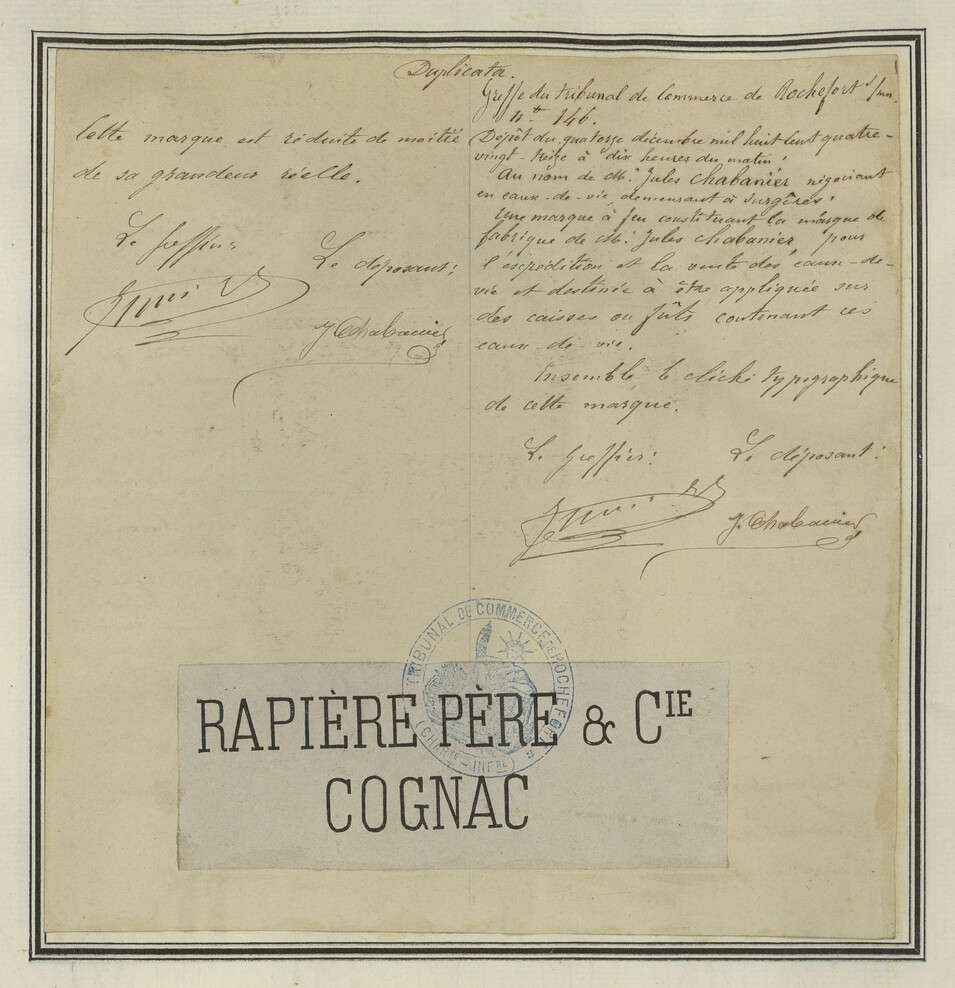 Duplicata.
Cette marque est réduite de moitié
de sa grandeur réelle.
Le Greffier:
Le déposant:
J. Chabanier
Greffe du tribunal de Commerce de Rochefort s/mer.
Nº 146.
Dépôt du quatorze décembre mil huit cent quatre-
vingt-treize à dix heures du matin.
Au nom de M. Jules Chabanier négociant
en eaux-de-vie, demeurant à Surgères:
Une marque à feu constituant la marque de
fabrique de M. Jules Chabanier, pour
l'expédition et la vente des eaux-de-
vie et destinée à être appliquée sur
des caisses ou fûts contenant ces
eaux-de-vie.
Ensemble le cliché typographique
de cette marque.
Le Greffier:
Le déposant:
J. Chabanier
TRIBUNAL DE COMMERCE DE ROCHEFORT
(CHARTE-INFRE)
RAPIÈRE PÈRE & CIE
COGNAC